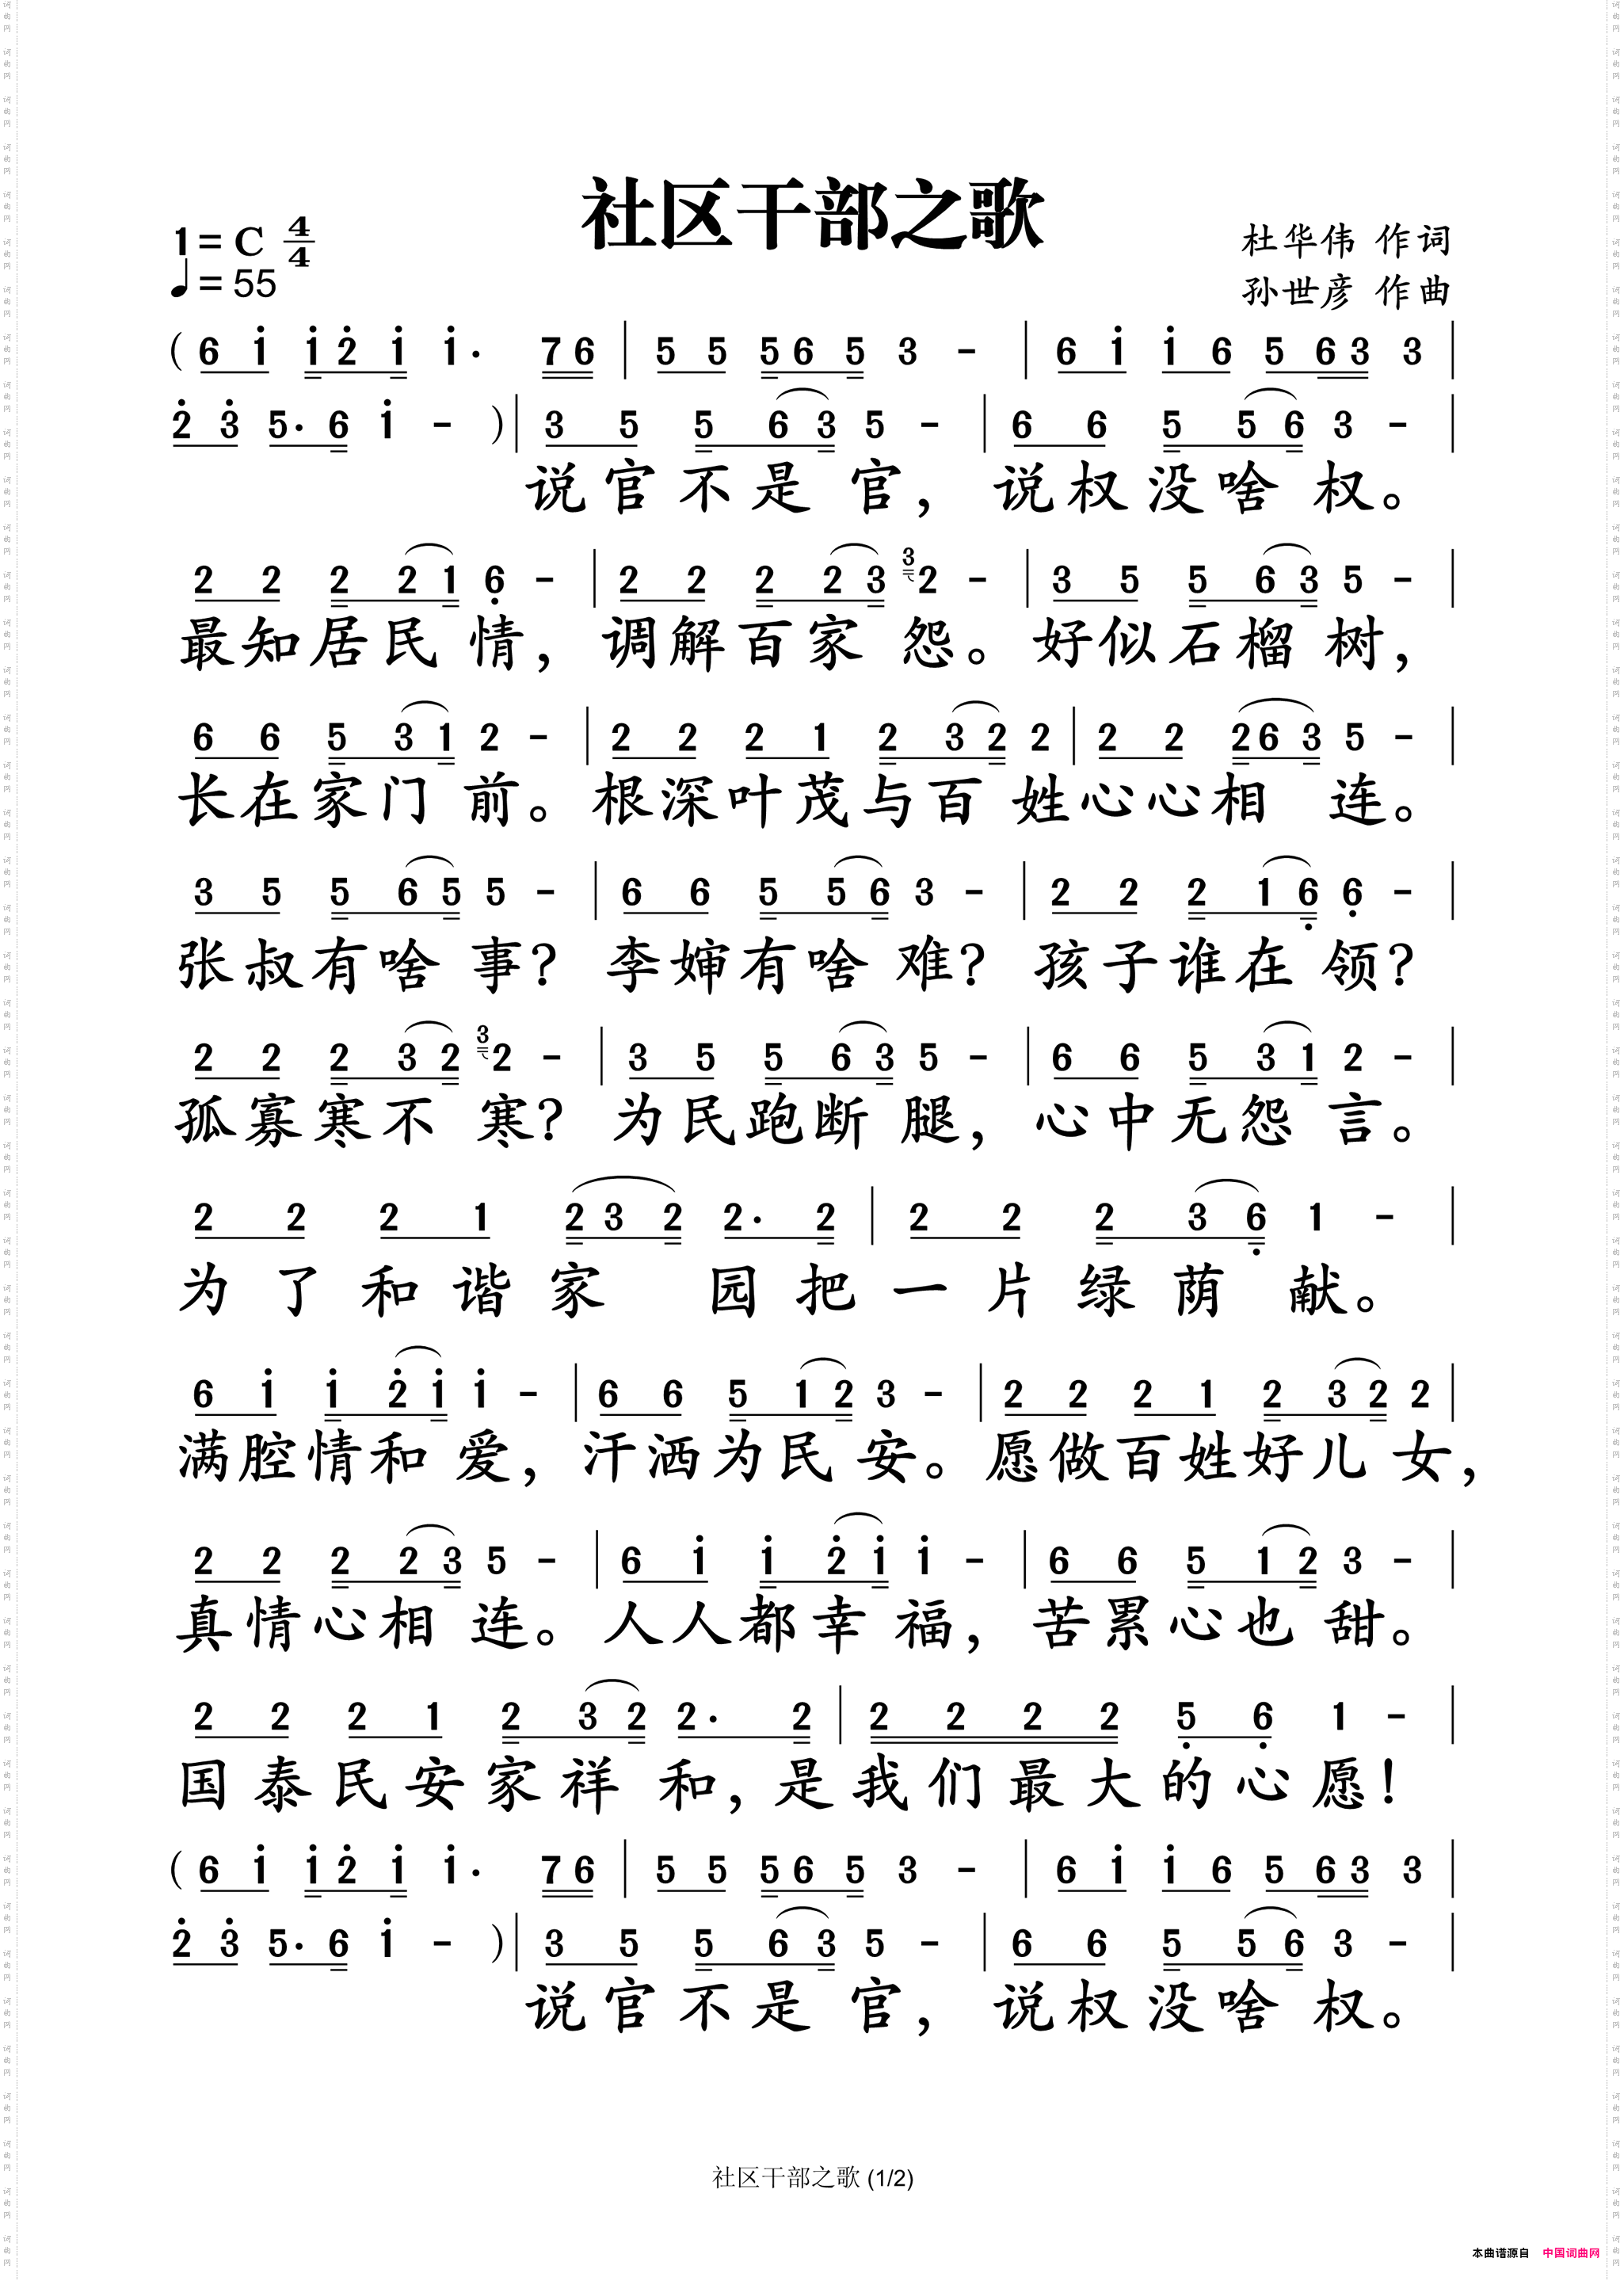 社区干部之歌
1=C 4/4
♩=55
杜华伟 作词
孙世彦 作曲
( 6 i i 2̇ i i· 7 6 | 5 5 5 6 5 3 - | 6 i i 6 5 6 3 3 |
2̇ 3̇ 5· 6 i - ) | 3 5 5 6 3 5 - | 6 6 5 5 6 3 - |
说官不是官，说权没啥权。
2 2 2 2 1 6̣ - | 2 2 2 2 3 3 2 - | 3 5 5 6 3 5 - |
最知居民情，调解百家怨。好似石榴树，
6 6 5 3 1 2 - | 2 2 2 1 2 3 2 2 | 2 2 2 6 3 5 - |
长在家门前。根深叶茂与百姓心心相连。
3 5 5 6 5 5 - | 6 6 5 5 6 3 - | 2 2 2 1 6̣ 6̣ - |
张叔有啥事？李婶有啥难？孩子谁在领？
2 2 2 3 2 3 2 - | 3 5 5 6 3 5 - | 6 6 5 3 1 2 - |
孤寡寒不寒？为民跑断腿，心中无怨言。
2 2 2 1 2 3 2 2· 2 | 2 2 2 3 6̣ 1 - |
为了和谐家园把一片绿荫献。
6 i i 2̇ i i - | 6 6 5 1 2 3 - | 2 2 2 1 2 3 2 2 |
满腔情和爱，汗洒为民安。愿做百姓好儿女，
2 2 2 2 3 5 - | 6 i i 2̇ i i - | 6 6 5 1 2 3 - |
真情心相连。人人都幸福，苦累心也甜。
2 2 2 1 2 3 2 2· 2 | 2 2 2 2 5̣ 6̣ 1 - |
国泰民安家祥和，是我们最大的心愿！
( 6 i i 2̇ i i· 7 6 | 5 5 5 6 5 3 - | 6 i i 6 5 6 3 3 |
2̇ 3̇ 5· 6 i - ) | 3 5 5 6 3 5 - | 6 6 5 5 6 3 - |
说官不是官，说权没啥权。
社区干部之歌 (1/2)
本曲谱源自 中国词曲网